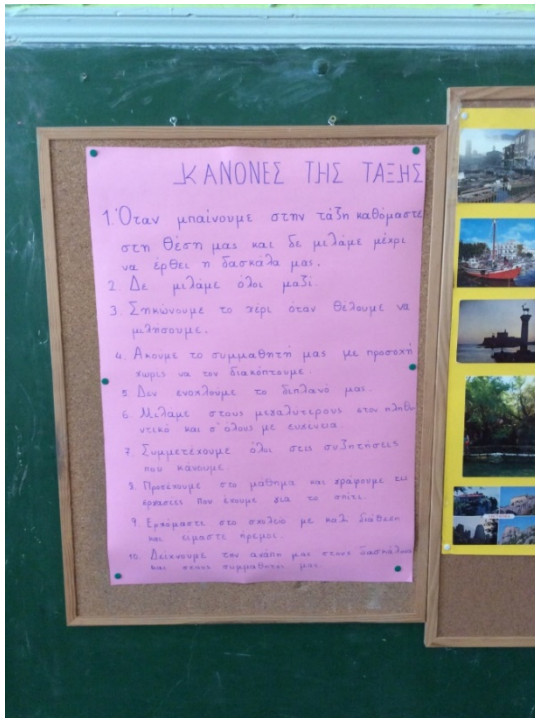 ΚΑΝΟΝΕΣ ΤΗΣ ΤΑΞΗΣ
1. Όταν μπαίνουμε στην τάξη καθόμαστε
στη θέση μας και δε μιλάμε μέχρι
να έρθει η δασκάλα μας.
2. Δε μιλάμε όλοι μαζί.
3. Σηκώνουμε το χέρι όταν θέλουμε να
μιλήσουμε.
4. Ακούμε το συμμαθητή μας με προσοχή
χωρίς να τον διακόπτουμε.
5. Δεν ενοχλούμε το διπλανό μας.
6. Μιλάμε στους μεγαλύτερους στον πληθυ
ντικό και σ' όλους με ευγένεια.
7. Συμμετέχουμε όλοι στις συζητήσεις
που κάνουμε.
8. Προσέχουμε στο μάθημα και γράφουμε τις
εργασίες που έχουμε για το σπίτι.
9. Ερχόμαστε στο σχολείο με καλή διάθεση
και είμαστε ήρεμοι.
10. Δείχνουμε την αγάπη μας στους δασκάλους
και στους συμμαθητές μας.